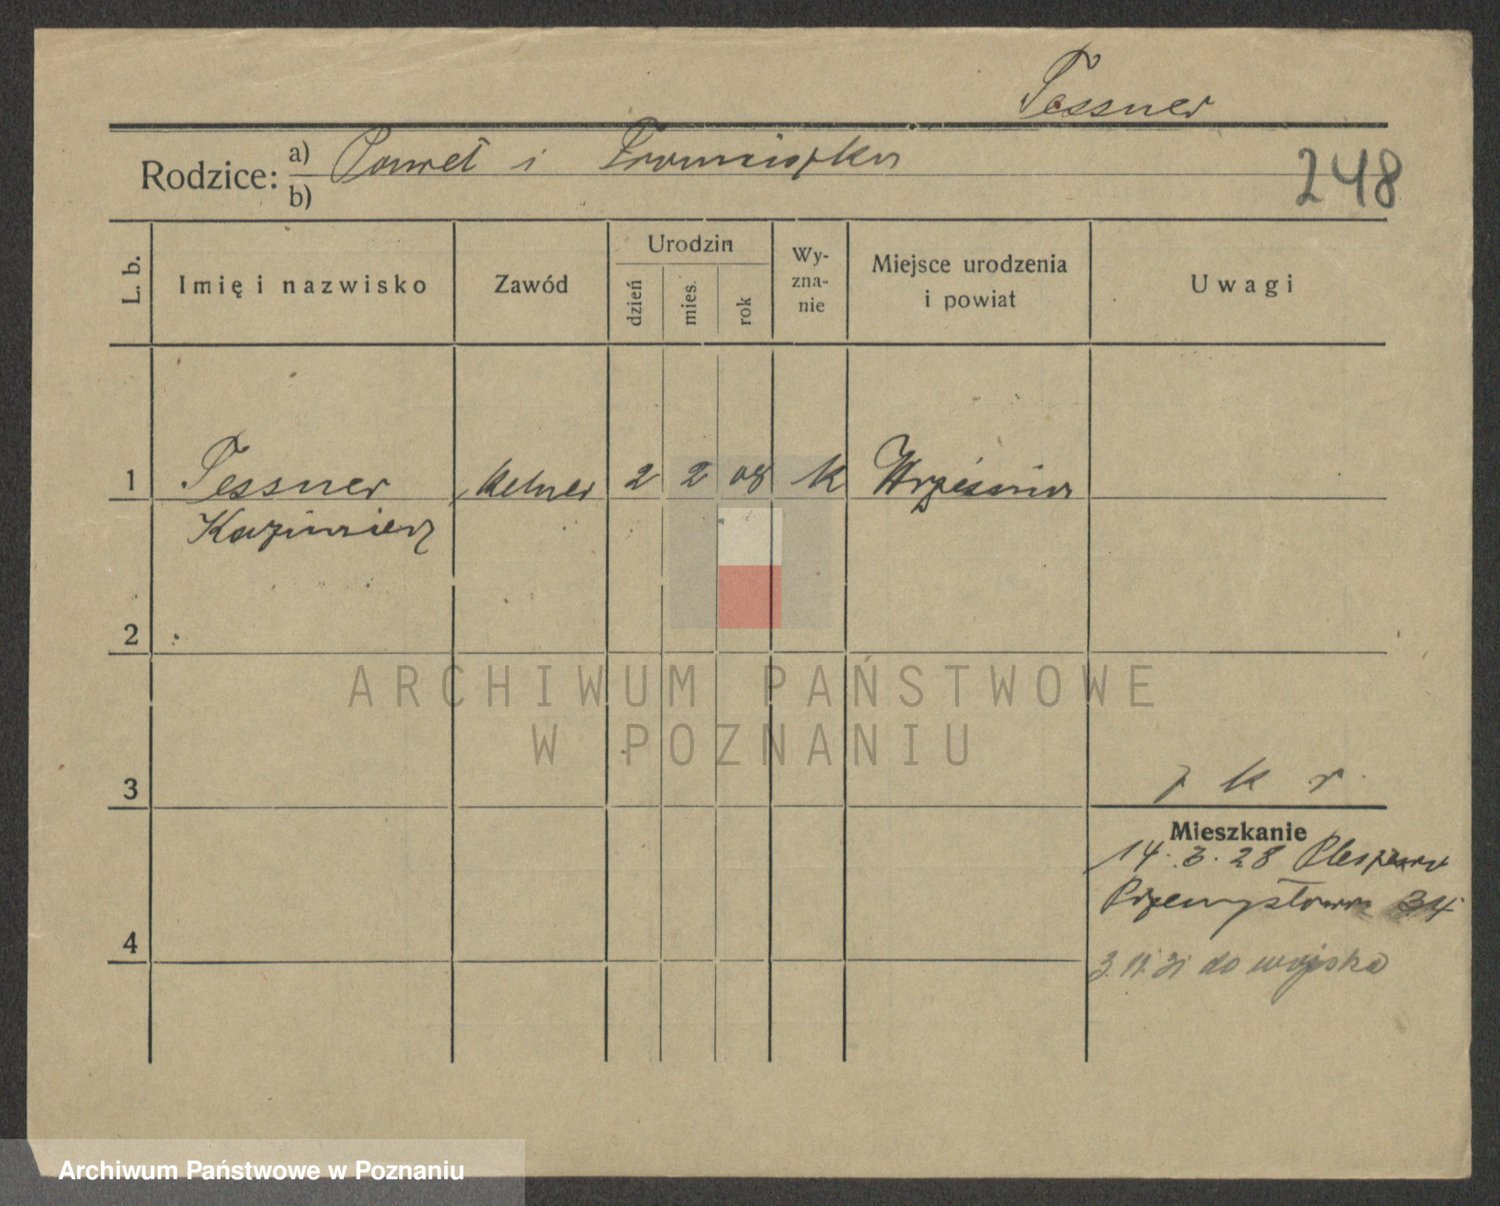 Tessner
Rodzice: a) Paweł i Franciszka
b)
248
L. b.
Imię i nazwisko
Zawód
Urodzin
dzień
mies.
rok
Wy-
zna-
nie
Miejsce urodzenia
i powiat
Uwagi
1 Tessner kelner 2 2 08 k Września
Kazimierz
2
3
k r
Mieszkanie
14. 3. 28 Pleszew
Przemysłowa 34
4
3. 11. 31 do wojska
ARCHIWUM PAŃSTWOWE
W POZNANIU
Archiwum Państwowe w Poznaniu